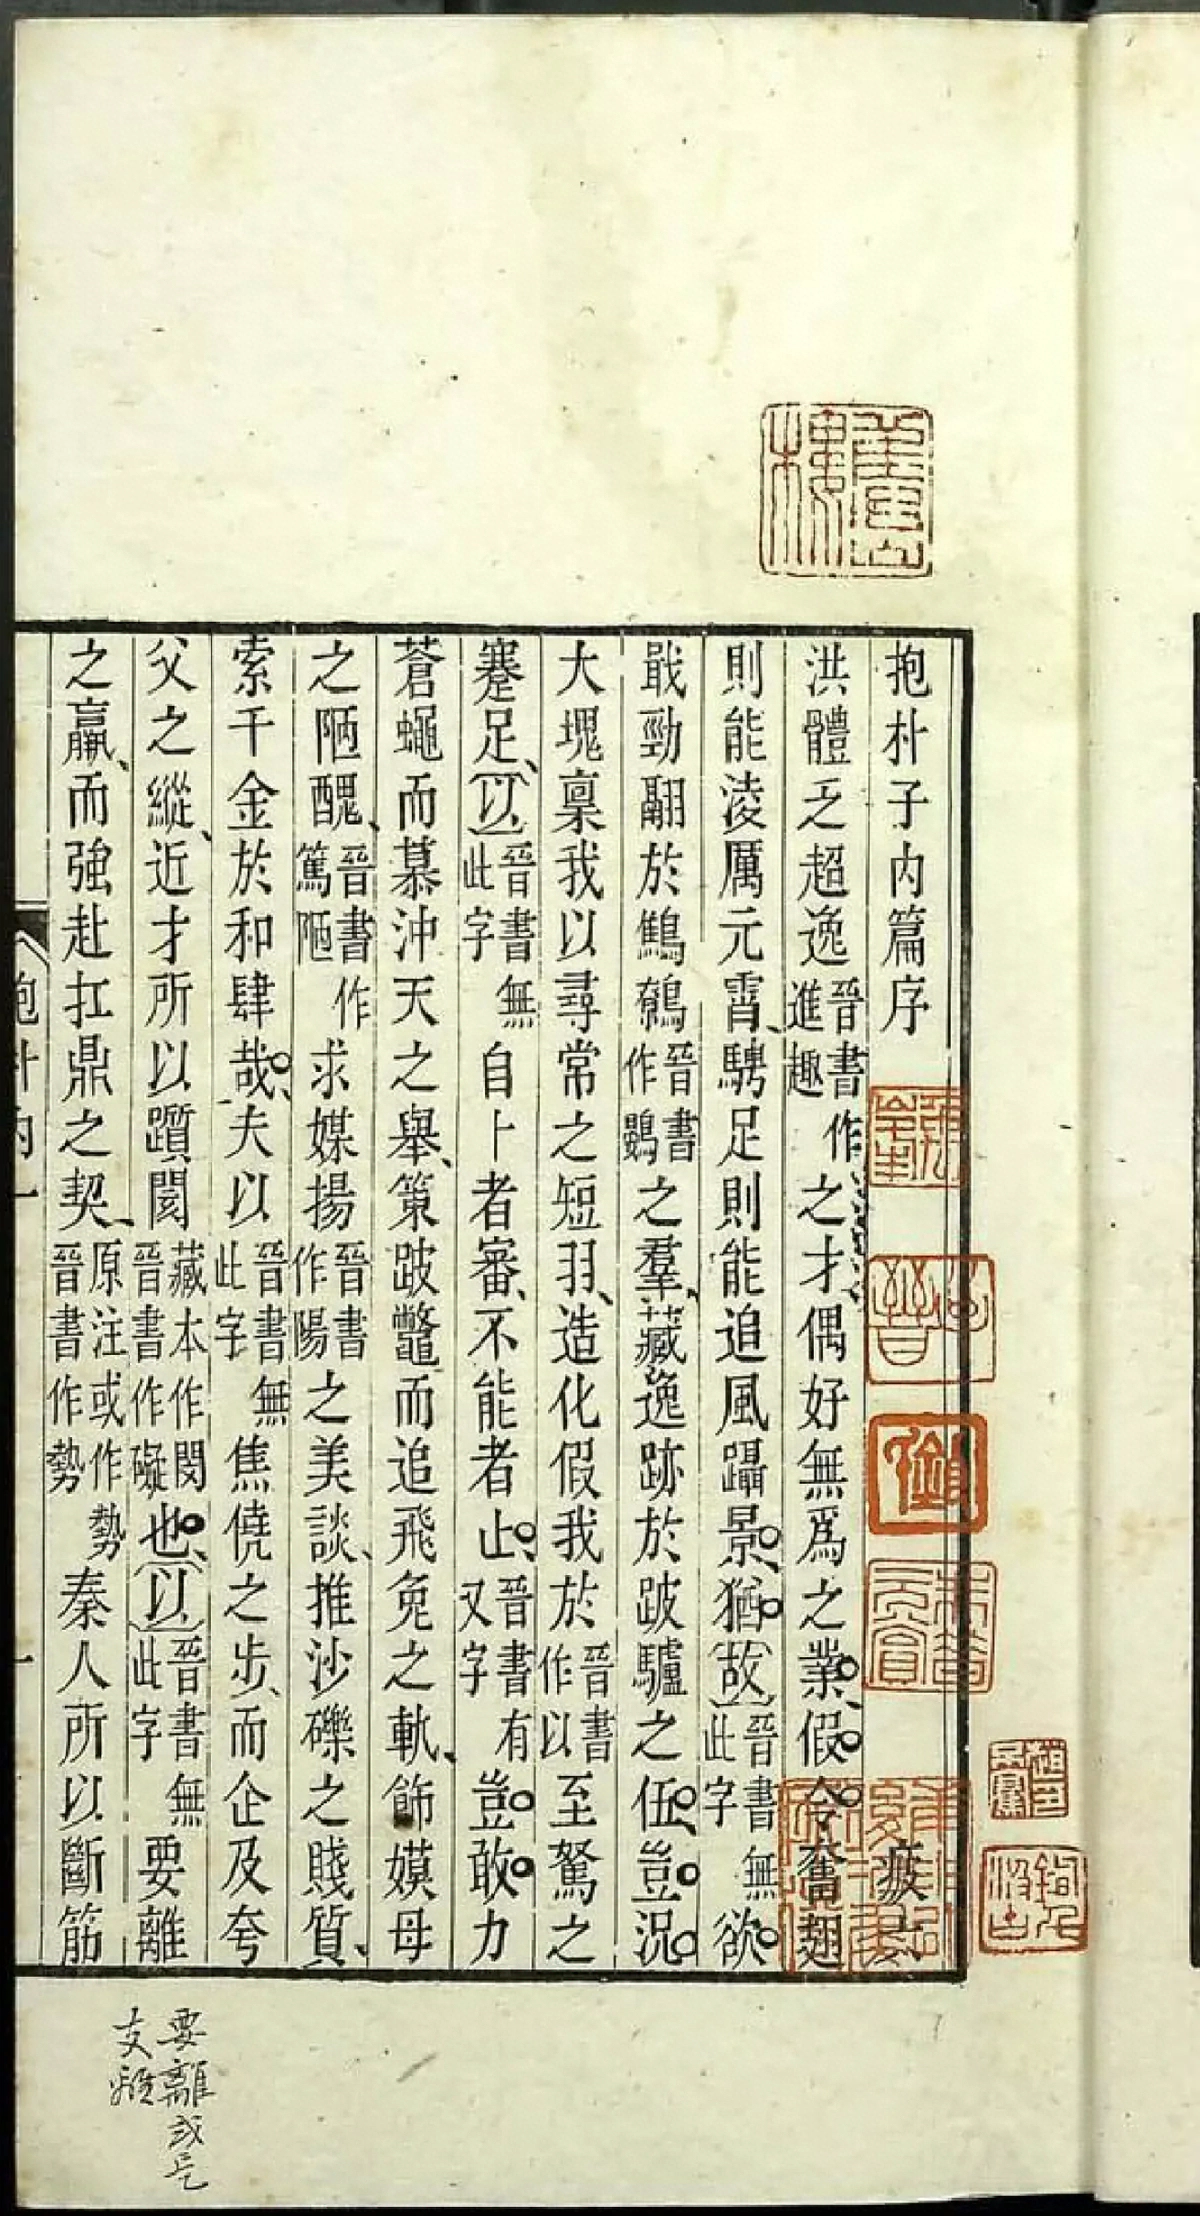 抱朴子內篇序　疲六
洪體乏超逸晉書作進趣之才偶好無爲之業假令奮翅
則能淩厲元霄騁足則能追風躡景猶(故)晉書無此字欲
戢勁翮於鷦鷯晉書作鷃之羣藏逸跡於跛驢之伍豈況
大塊稟我以尋常之短羽造化假我於晉書作以至駑之
蹇足(以)晉書無此字自卜者審不能者止晉書有又字豈敢力
蒼蠅而慕沖天之舉策跛鼈而追飛兔之軌飾嫫母
之陋醜晉書作篤陋求媒揚晉書作陽之美談推沙礫之賤質
索千金於和肆哉夫以晉書無此字焦僥之步而企及夸
父之縱近才所以躓閡藏本作閔晉書作礙也(以)晉書無此字要離
之羸而強赴扛鼎之契原注或作勢晉書作勢秦人所以斷筋
抱朴內一
一
要離或是
支離
樓